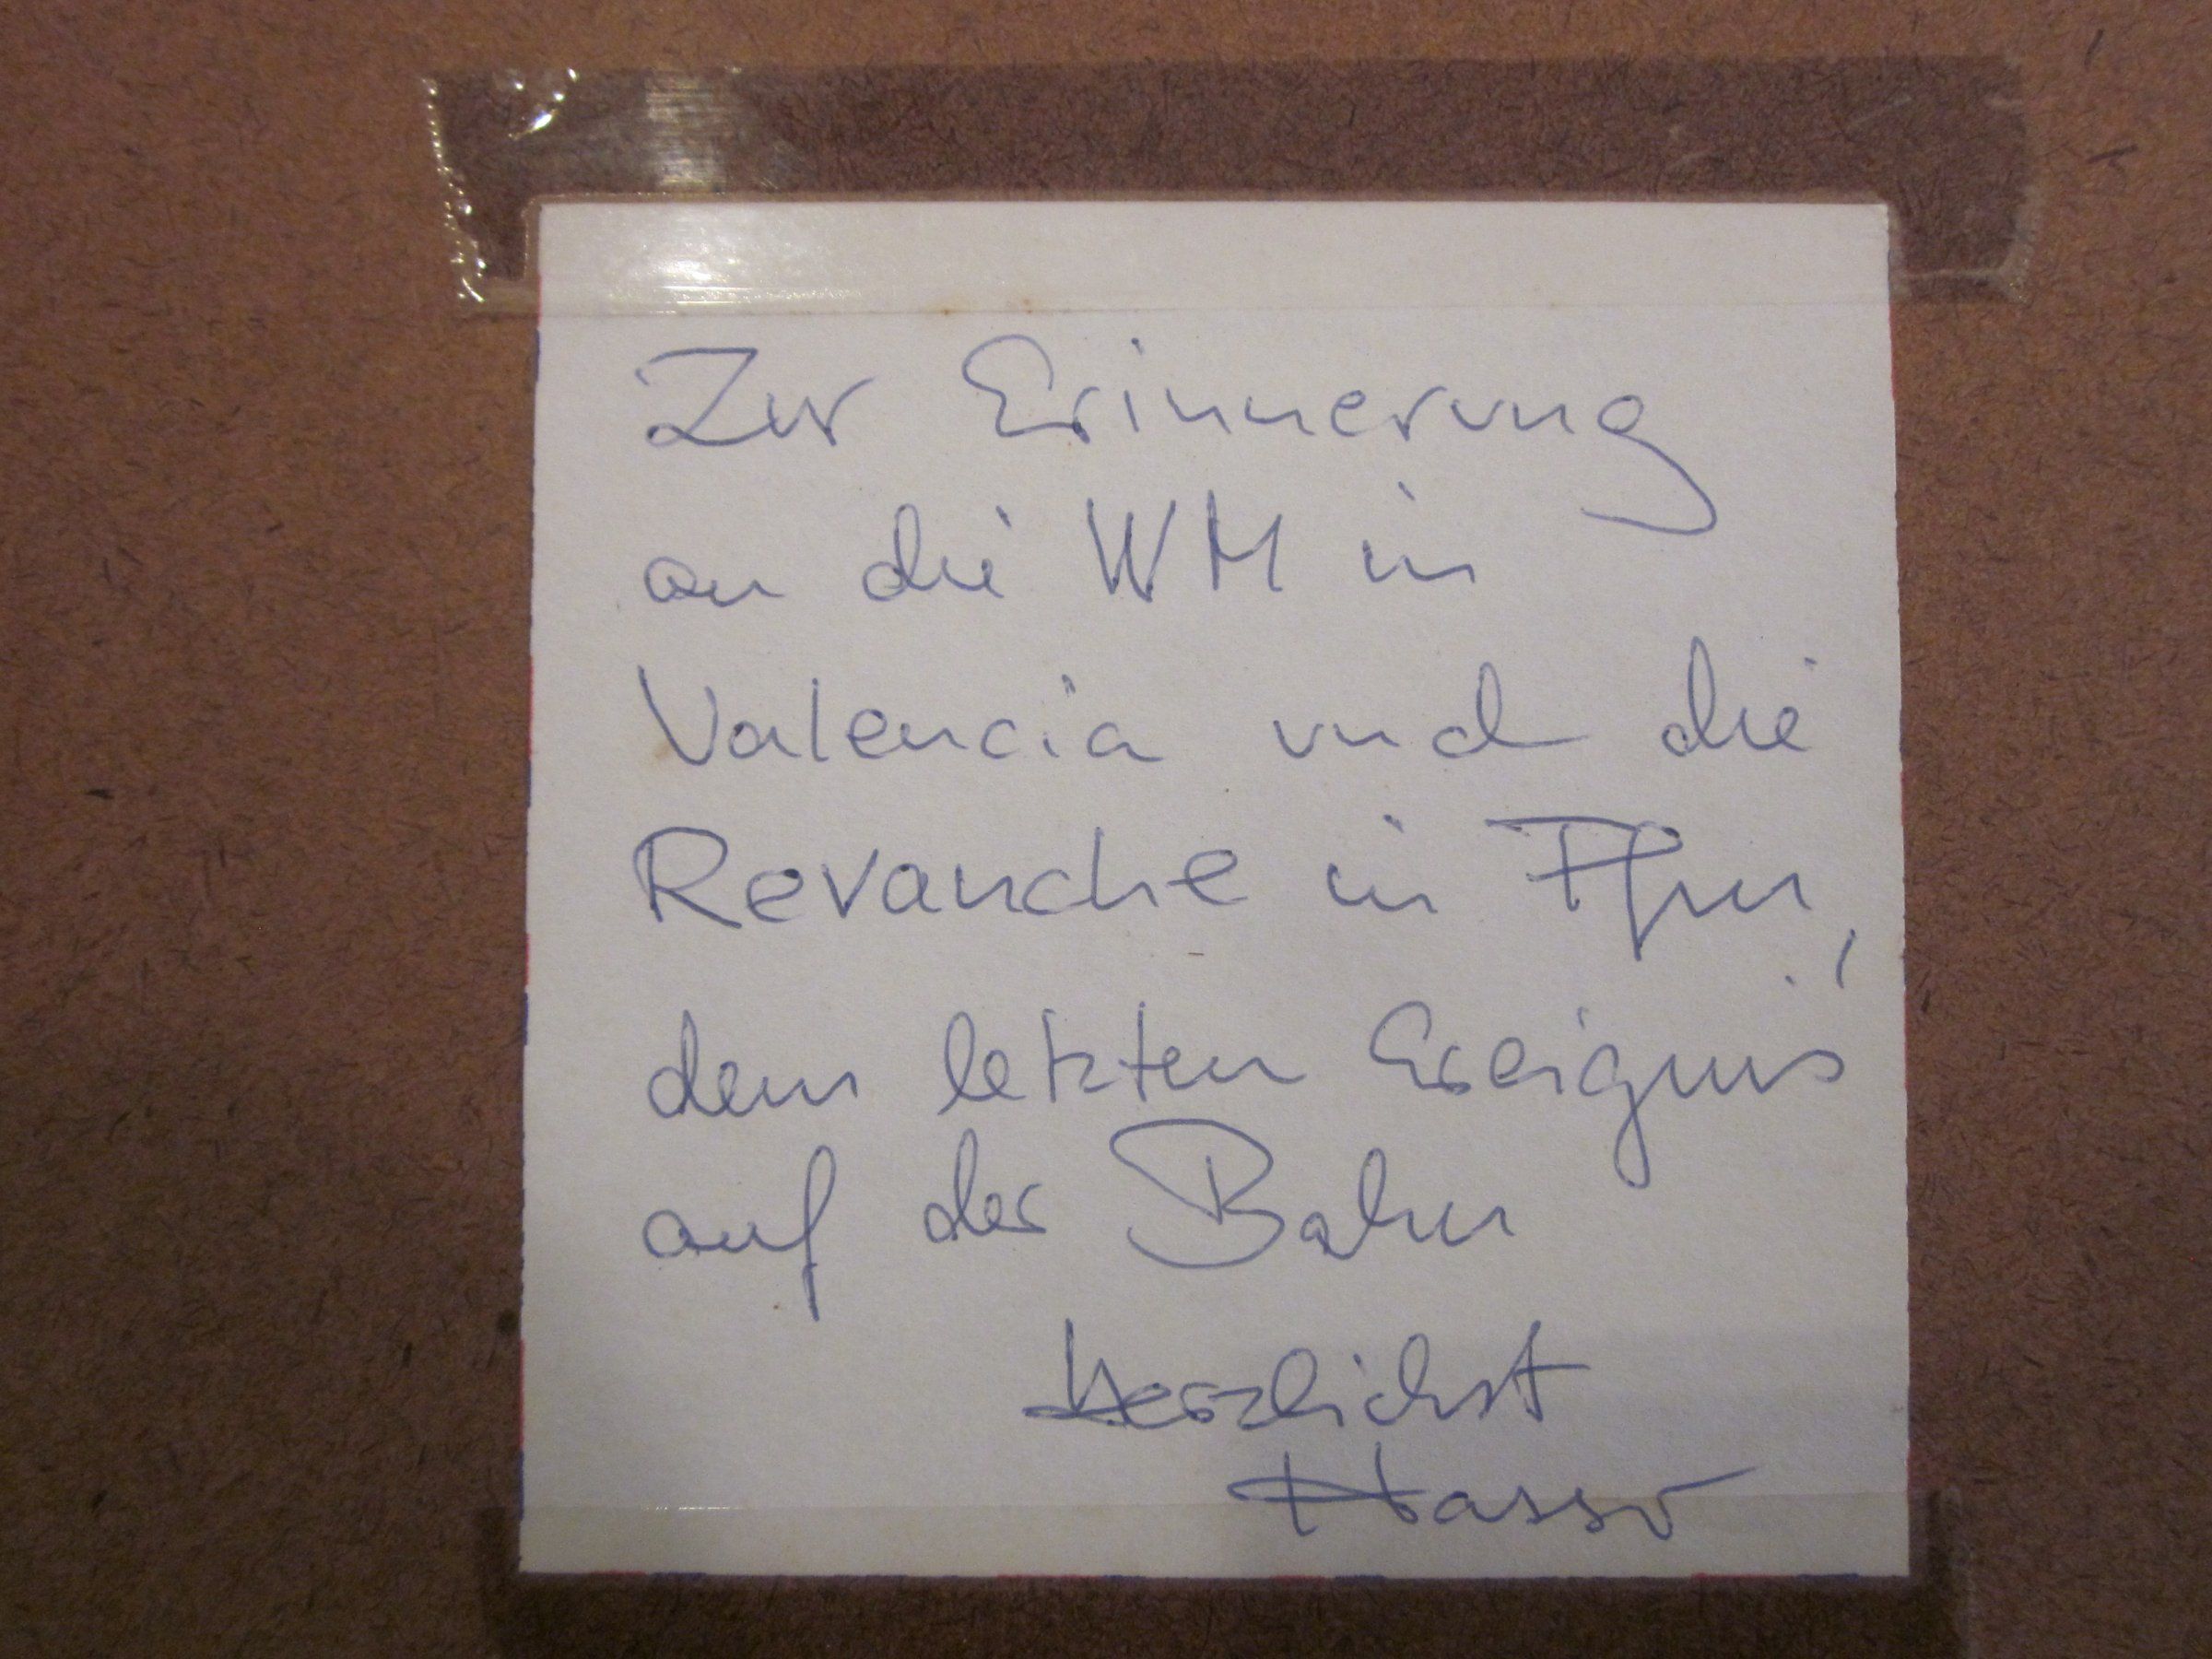 Zur Erinnerung
an die WM in
Valencia und die
Revanche in Ffm,
dem letzten Ereignis
auf der Bahn
Herzlichst
Hasso